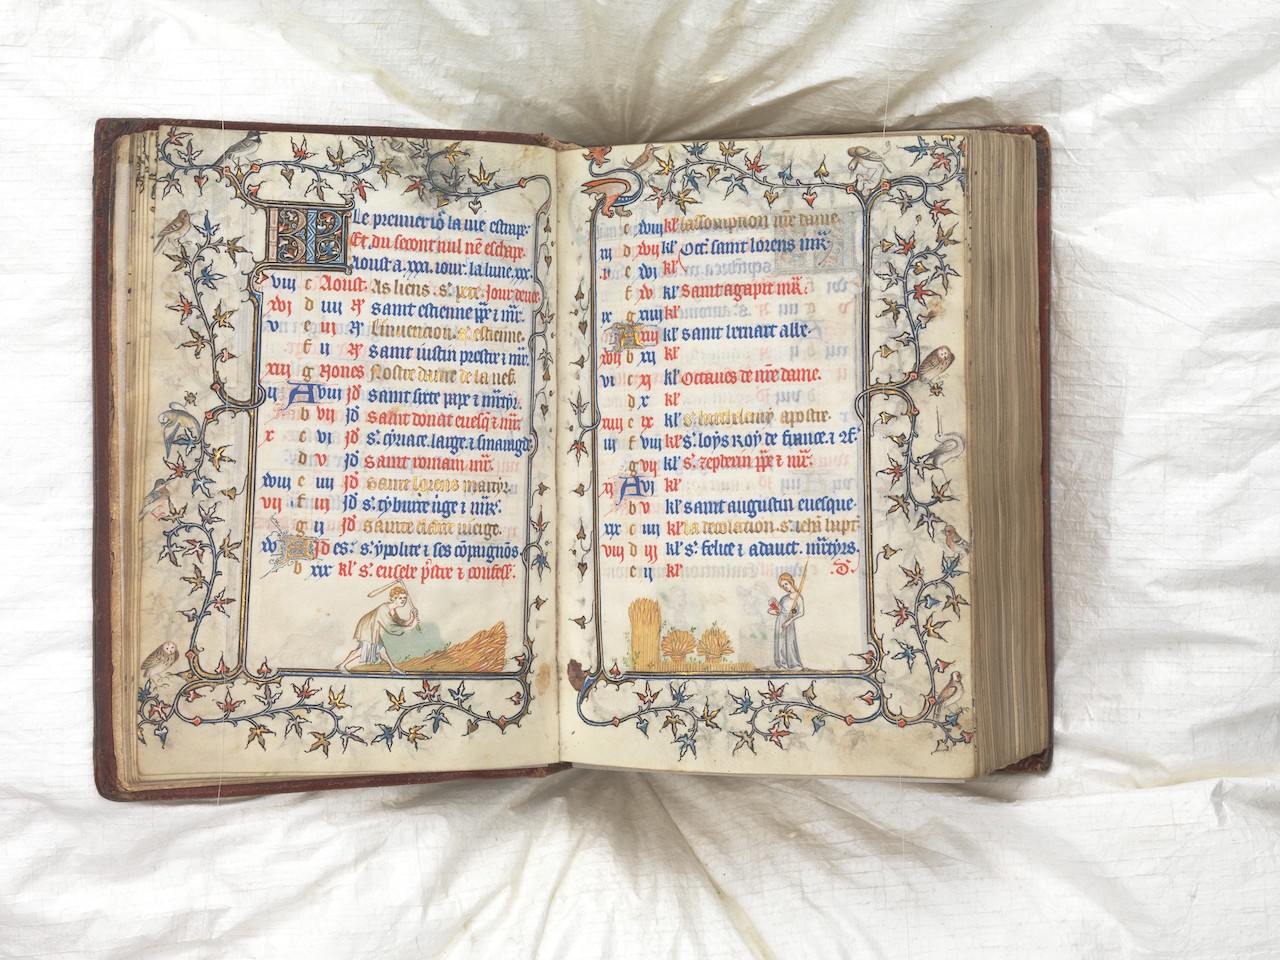 KL Le premier io la nie estrape.
Et du secont nul nē eschape.
Aoust a .xxxi. iour. la lune .xxx.
viii c Aoust. As liens .s. pere. Iour
xvi d iiii N̄ saint estienne pp̄e ⁊ mr̄.
v e iii N̄ Linuencion .s. estienne.
f ii N̄ saint iustin prestre ⁊ mr̄.
xiii g Nones Nostre dame de la nef.
ii A viii Id saint sixte pape ⁊ martyr.
b vii Id saint donat euesq ⁊ mr̄.
x c vi Id s. cyriace. large. ⁊ smaragde
d v Id saint romain mr̄.
xviii e iiii Id saint lorens martyr.
vii f iii Id s. tyburce uige ⁊ mr̄.
g ii Id sainte clare uierge.
xv A Id es. s. ypolite ⁊ ses cōpaignōs.
b xix kl s. eusebe p̄stre ⁊ confess.
c xviii kl lassomption nr̄e dame.
iiii d xvii kl Oct saint lorens mr̄.
i e xvi kl
f xv kl saint agapit mr̄.
ix g xiiii kl
A xiii kl saint bernart abbe.
xvii b xii kl
vi c xi kl Octaues de nr̄e dame.
d x kl
xiiii e ix kl s. barthelemy apostre.
iii f viii kl s. loys Roy de france. ⁊ 9f.
g vii kl s. zepherin pp̄e ⁊ mr̄.
xi A vi kl
b v kl saint augustin euesque.
xix c iiii kl la decolation .s. iehā bapt.
viii d iii kl s. felice ⁊ adauct. mr̄tyrs.
e ii kl .D.